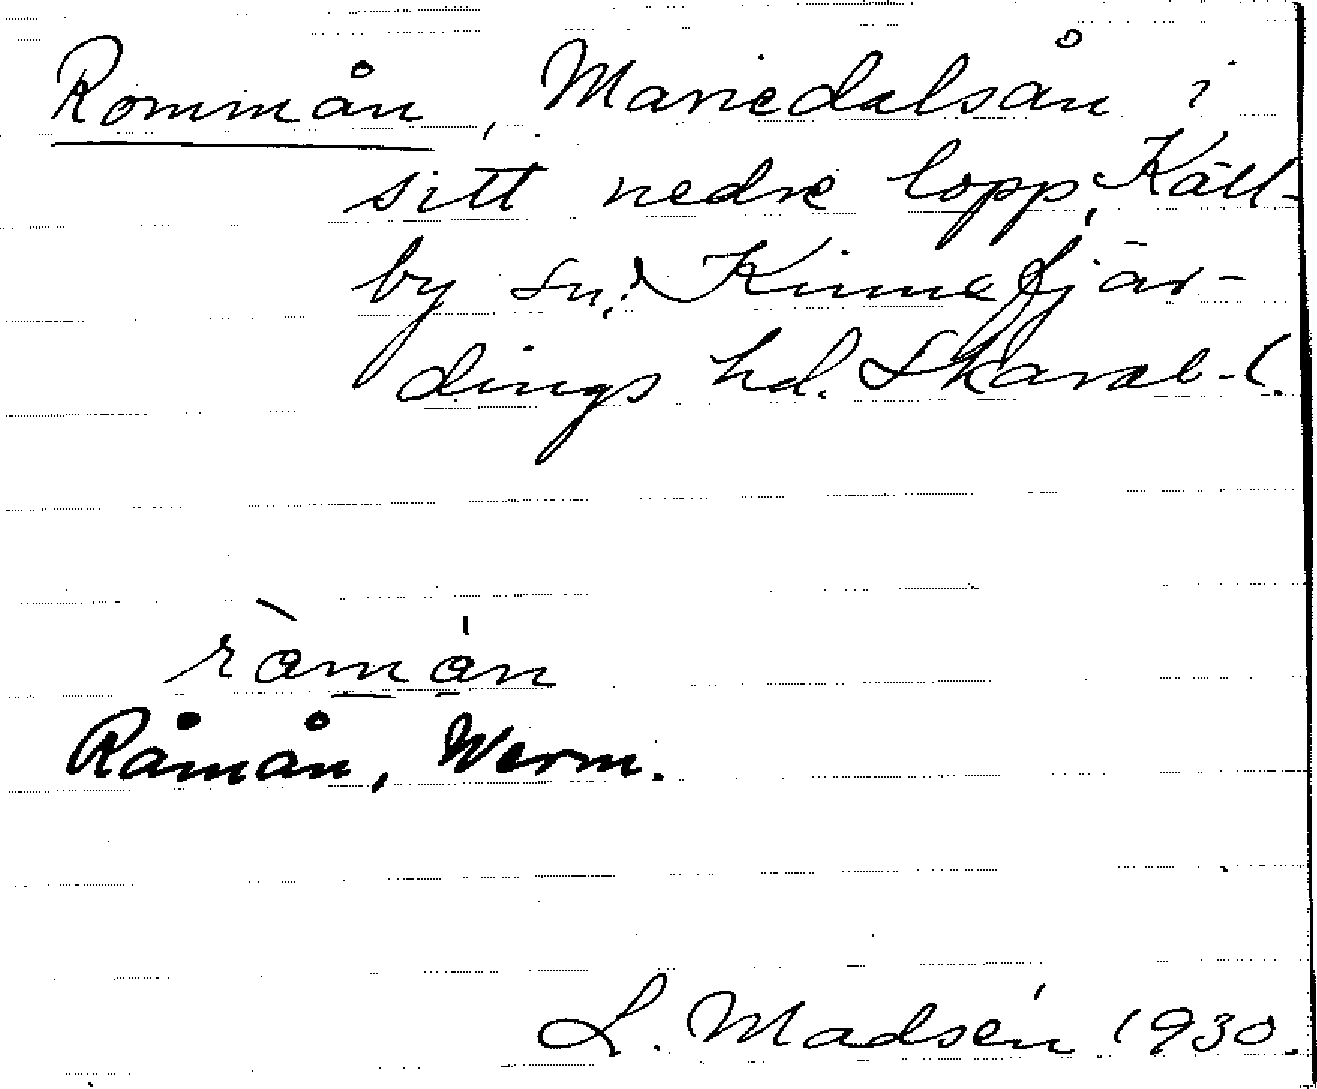 Rommån, Mariedalsån i
sitt nedre lopp, Käll-
by sn. Kinnefjär-
dings hd. Skarab. l.
ràmån
Råmån, Werm.
L. Madsén 1930.